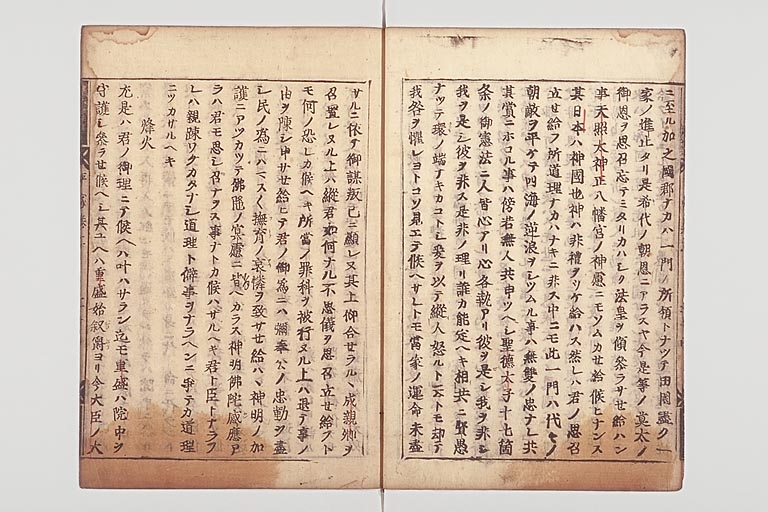 ニ至ル加之國郡半ハ一門ノ所領トナツテ田園盡ク一
家ノ進止タリ是希代ノ朝恩ニアラスヤ今是等ノ莫太ノ
御恩ヲ思召忘テミタリカハシク法皇ヲ傾參ラサせ給ハン
事天照太神正八幡宮ノ神慮ニモソムカせ給候ヒナンス
其日本ハ神國也神ハ非禮ヲウケ給ハス然レハ君ノ思召
立せ給フ所道理ナカハナキニ非ス中ニモ此一門ハ代々
朝敵ヲ平ケテ四海ノ逆浪ヲシツムル事ハ無雙ノ忠ナレ共
其賞ニホコル事ハ傍若無人共申ツヘシ聖德太子十七箇
条ノ御憲法ニ人皆心アリ心各執アリ彼ヲ是シ我ヲ非シ
我ヲ是シ彼ヲ非ス是非ノ理リ誰カ能定ヘキ相共ニ賢愚
ナツテ環ノ端ナキカコトシ爰ヲ以テ縱人怒ルト云トモ却テ
我咎ヲ懼レヨトコソ見エテ候ヘサレトモ當家ノ運命未盡
サルニ依テ御謀叛已ニ顯レ又其上仰合せラルヽ成親卿ヲ
召置レヌル上ハ縱君如何ナル不思儀ヲ思召立せ給フト
モ何ノ恐レカ候ヘキ所當ノ罪科ヲ被行ヌル上ハ退テ事ノ
由ヲ陳シ申サせ給ヒテ君ノ御爲ニハ彌奉公ノ忠勤ヲ盡
シ民ノ爲ニハマスヽク撫育ノ哀憐ヲ致サせ給ハヽ神明ノ加
護ニアツカツテ佛陀ノ冥慮ニ背ヘカラス神明佛陀感應ア
ラハ君モ思シ召ナヲス事ナトカ候ハサルヘキ君ト臣トナラフ
レハ親疎ワクカタナシ道理ト僻事ヲナラヘンニ爭テカ道理
ニツカサルヘキ
烽火
尤是ハ君ノ御理ニテ候ヘハ叶ハサラン迄モ重盛ハ院中ヲ
守護シ參ラせ候ヘシ其ユヘハ重盛始叙爵ヨリ今大臣ノ大